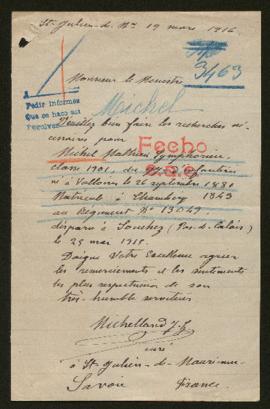 St Julien-de-Mne 19 mars 1916
3463
Monsieur le Ministre
Michel
A
Pedir informes
Que se haga sut
Devolver
Veuillez bien faire les recherches né-
cessaires pour
Fecho
Michel Mathieu Symphorien,
classe 1901, du
né à Valloire le 26 septembre 1881
Matricule à Chambéry 1343
au Régiment No 13049
disparu à Souchez (Pas-de-Calais)
le 25 mai 1915.
Daigne Votre Excellence agréer
les remerciements et les sentiments
les plus respectueux de son
très-humble serviteur
Michelland J. J.
curé
à St-Julien-de-Maurienne
Savoie France